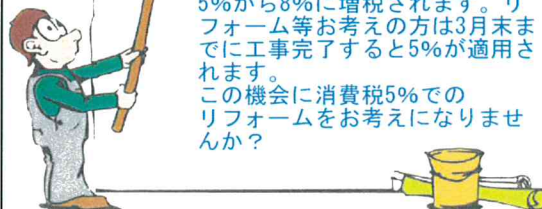 5%から8%に増税されます。リ
フォーム等お考えの方は3月末ま
でに工事完了すると5%が適用さ
れます。
この機会に消費税5%での
リフォームをお考えになりませ
んか？